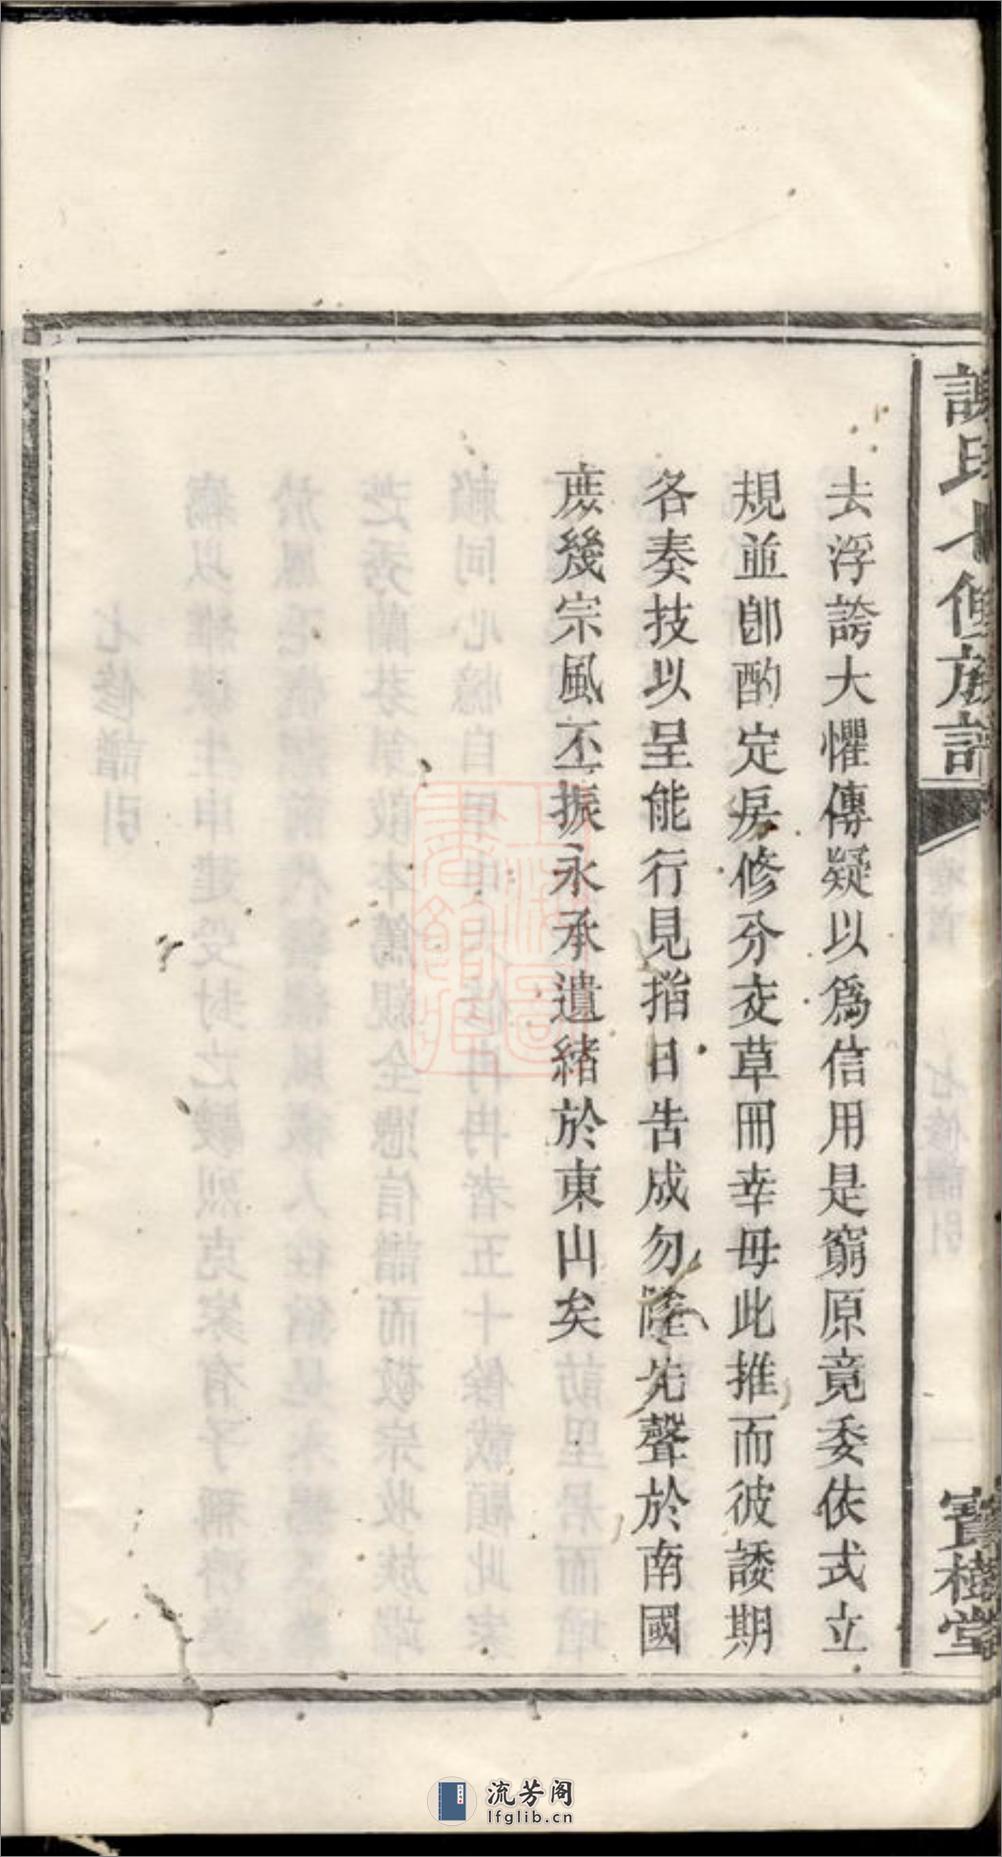 謝氏七修族譜
寶樹堂
去浮誇大懼傳疑以爲信用是窮原竟委依式立
規並卽酌定房修分交草冊幸毋此推而彼諉期
各奏技以呈能行見指日告成勿隳先聲於南國
庶幾宗風丕振永承遺緒於東山矣
流芳阁
lfglib.cn